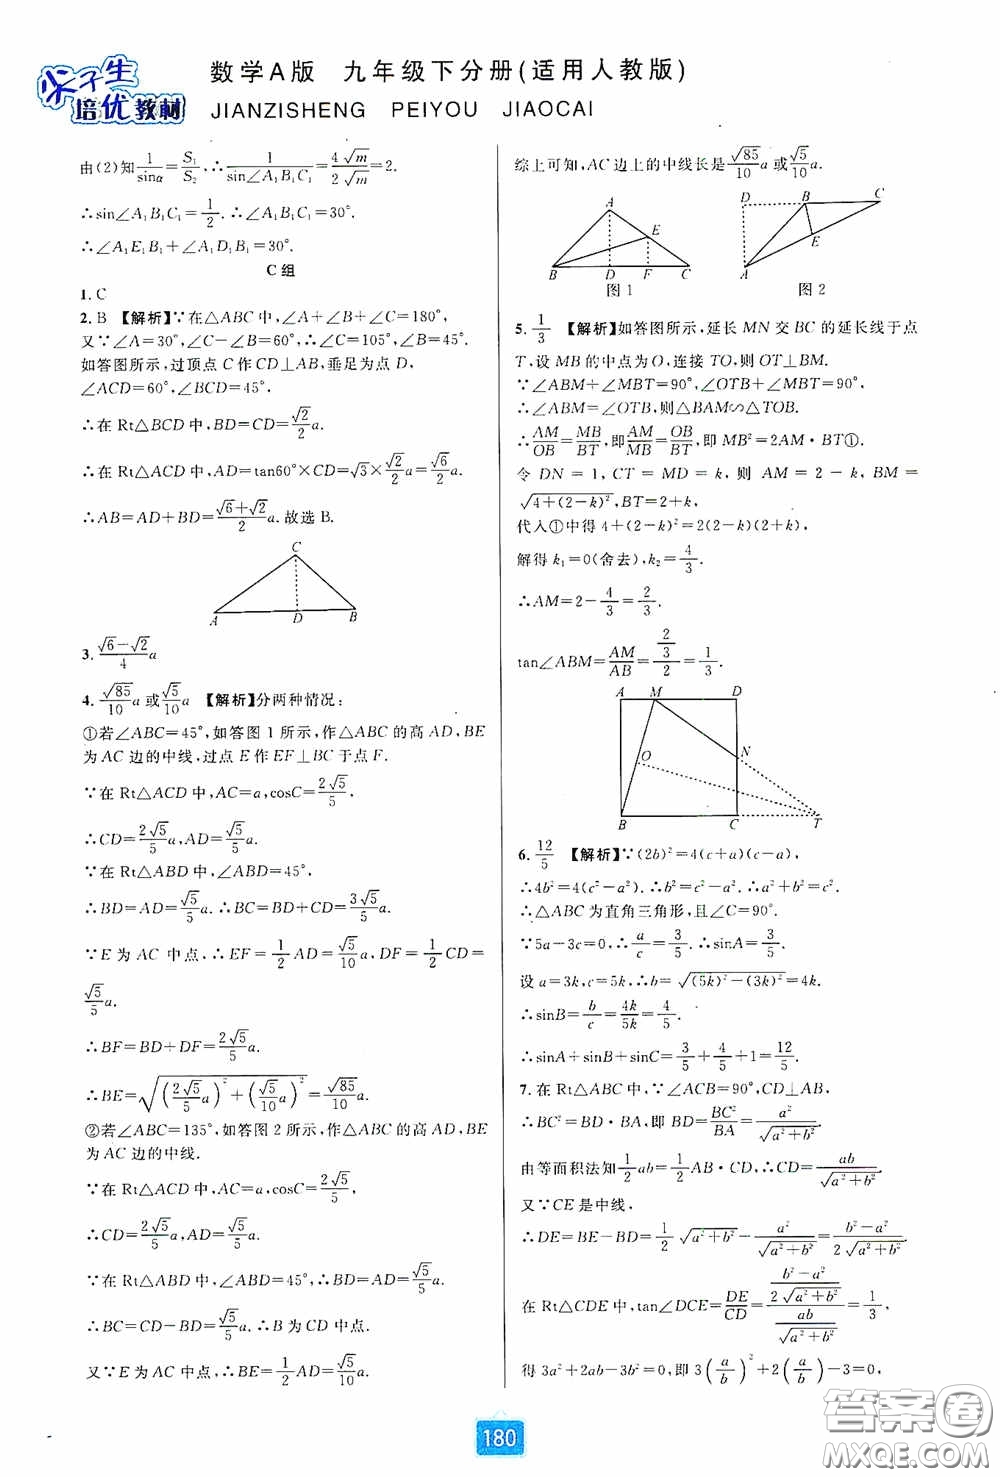 尖子生
培优教材
数学A版 九年级下分册(适用人教版)
JIANZISHENG PEIYOU JIAOCAI
由(2)知1/sinα=S₁/S₂,∴1/sin∠A₁B₁C₁=4√m/2√m=2.
∴sin∠A₁B₁C₁=1/2.∴∠A₁B₁C₁=30°.
∴∠A₁E₁B₁+∠A₁D₁B₁=30°.
C组
1.C
2.B 【解析】∵在△ABC中,∠A+∠B+∠C=180°,
又∵∠A=30°,∠C-∠B=60°,∴∠C=105°,∠B=45°.
如答图所示,过顶点C作CD⊥AB,垂足为点D,
∠ACD=60°,∠BCD=45°.
∴在Rt△BCD中,BD=CD=√2/2a.
∴在Rt△ACD中,AD=tan60°×CD=√3×√2/2a=√6/2a.
∴AB=AD+BD=(√6+√2)/2a.故选B.
C
A D B
3.(√6-√2)/4a
4.√85/10a或√5/10a 【解析】分两种情况:
①若∠ABC=45°,如答图1所示,作△ABC的高AD,BE
为AC边的中线,过点E作EF⊥BC于点F.
∵在Rt△ACD中,AC=a,cosC=2√5/5,
∴CD=2√5/5a,AD=√5/5a.
∵在Rt△ABD中,∠ABD=45°,
∴BD=AD=√5/5a.∴BC=BD+CD=3√5/5a.
∵E为AC中点,∴EF=1/2AD=√5/10a,DF=1/2CD=
√5/5a.
∴BF=BD+DF=2√5/5a.
∴BE=√((2√5/5a)²+(√5/10a)²)=√85/10a.
②若∠ABC=135°,如答图2所示,作△ABC的高AD,BE
为AC边的中线.
∵在Rt△ACD中,AC=a,cosC=2√5/5,
∴CD=2√5/5a,AD=√5/5a.
∵在Rt△ABD中,∠ABD=45°,∴BD=AD=√5/5a.
∴BC=CD-BD=√5/5a.∴B为CD中点.
又∵E为AC中点,∴BE=1/2AD=√5/10a.
综上可知,AC边上的中线长是√85/10a或√5/10a.
A
E
B D F C
图1
D B C
E
A
图2
5.1/3 【解析】如答图所示,延长MN交BC的延长线于点
T,设MB的中点为O,连接TO,则OT⊥BM.
∵∠ABM+∠MBT=90°,∠OTB+∠MBT=90°,
∴∠ABM=∠OTB,则△BAM∽△TOB.
∴AM/OB=MB/BT,即AM/MB=OB/BT,即MB²=2AM·BT①.
令DN=1,CT=MD=k,则AM=2-k,BM=
√(4+(2-k)²),BT=2+k,
代入①中得4+(2-k)²=2(2-k)(2+k),
解得k₁=0(舍去),k₂=4/3.
∴AM=2-4/3=2/3.
tan∠ABM=AM/AB=(2/3)/2=1/3.
A M D
O N
B C T
6.12/5 【解析】∵(2b)²=4(c+a)(c-a),
∴4b²=4(c²-a²).∴b²=c²-a².∴a²+b²=c².
∴△ABC为直角三角形,且∠C=90°.
∵5a-3c=0,∴a/c=3/5.∴sinA=3/5.
设a=3k,c=5k,∴b=√((5k)²-(3k)²)=4k.
∴sinB=b/c=4k/5k=4/5.
∴sinA+sinB+sinC=3/5+4/5+1=12/5.
7.在Rt△ABC中,∵∠ACB=90°,CD⊥AB,
∴BC²=BD·BA,即BD=BC²/BA=a²/√(a²+b²).
由等面积法知1/2ab=1/2AB·CD,∴CD=ab/√(a²+b²).
又∵CE是中线,
∴DE=BE-BD=1/2√(a²+b²)-a²/√(a²+b²)=(b²-a²)/(2√(a²+b²)).
在Rt△CDE中,tan∠DCE=DE/CD=((b²-a²)/(2√(a²+b²)))/(ab/√(a²+b²))=1/3,
得3a²+2ab-3b²=0,即3(a/b)²+2(a/b)-3=0,
180
答案圈
MXQE.COM